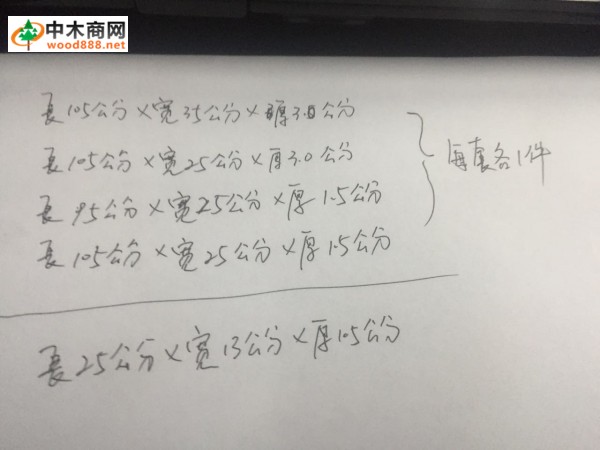 中木商网
wood888.net
長105公分×宽35公分×厚3.0公分
長105公分×宽25公分×厚3.0公分
長95公分×宽25公分×厚1.5公分
長105公分×宽25公分×厚1.5公分
每套各1件
長25公分×宽13公分×厚1.05公分